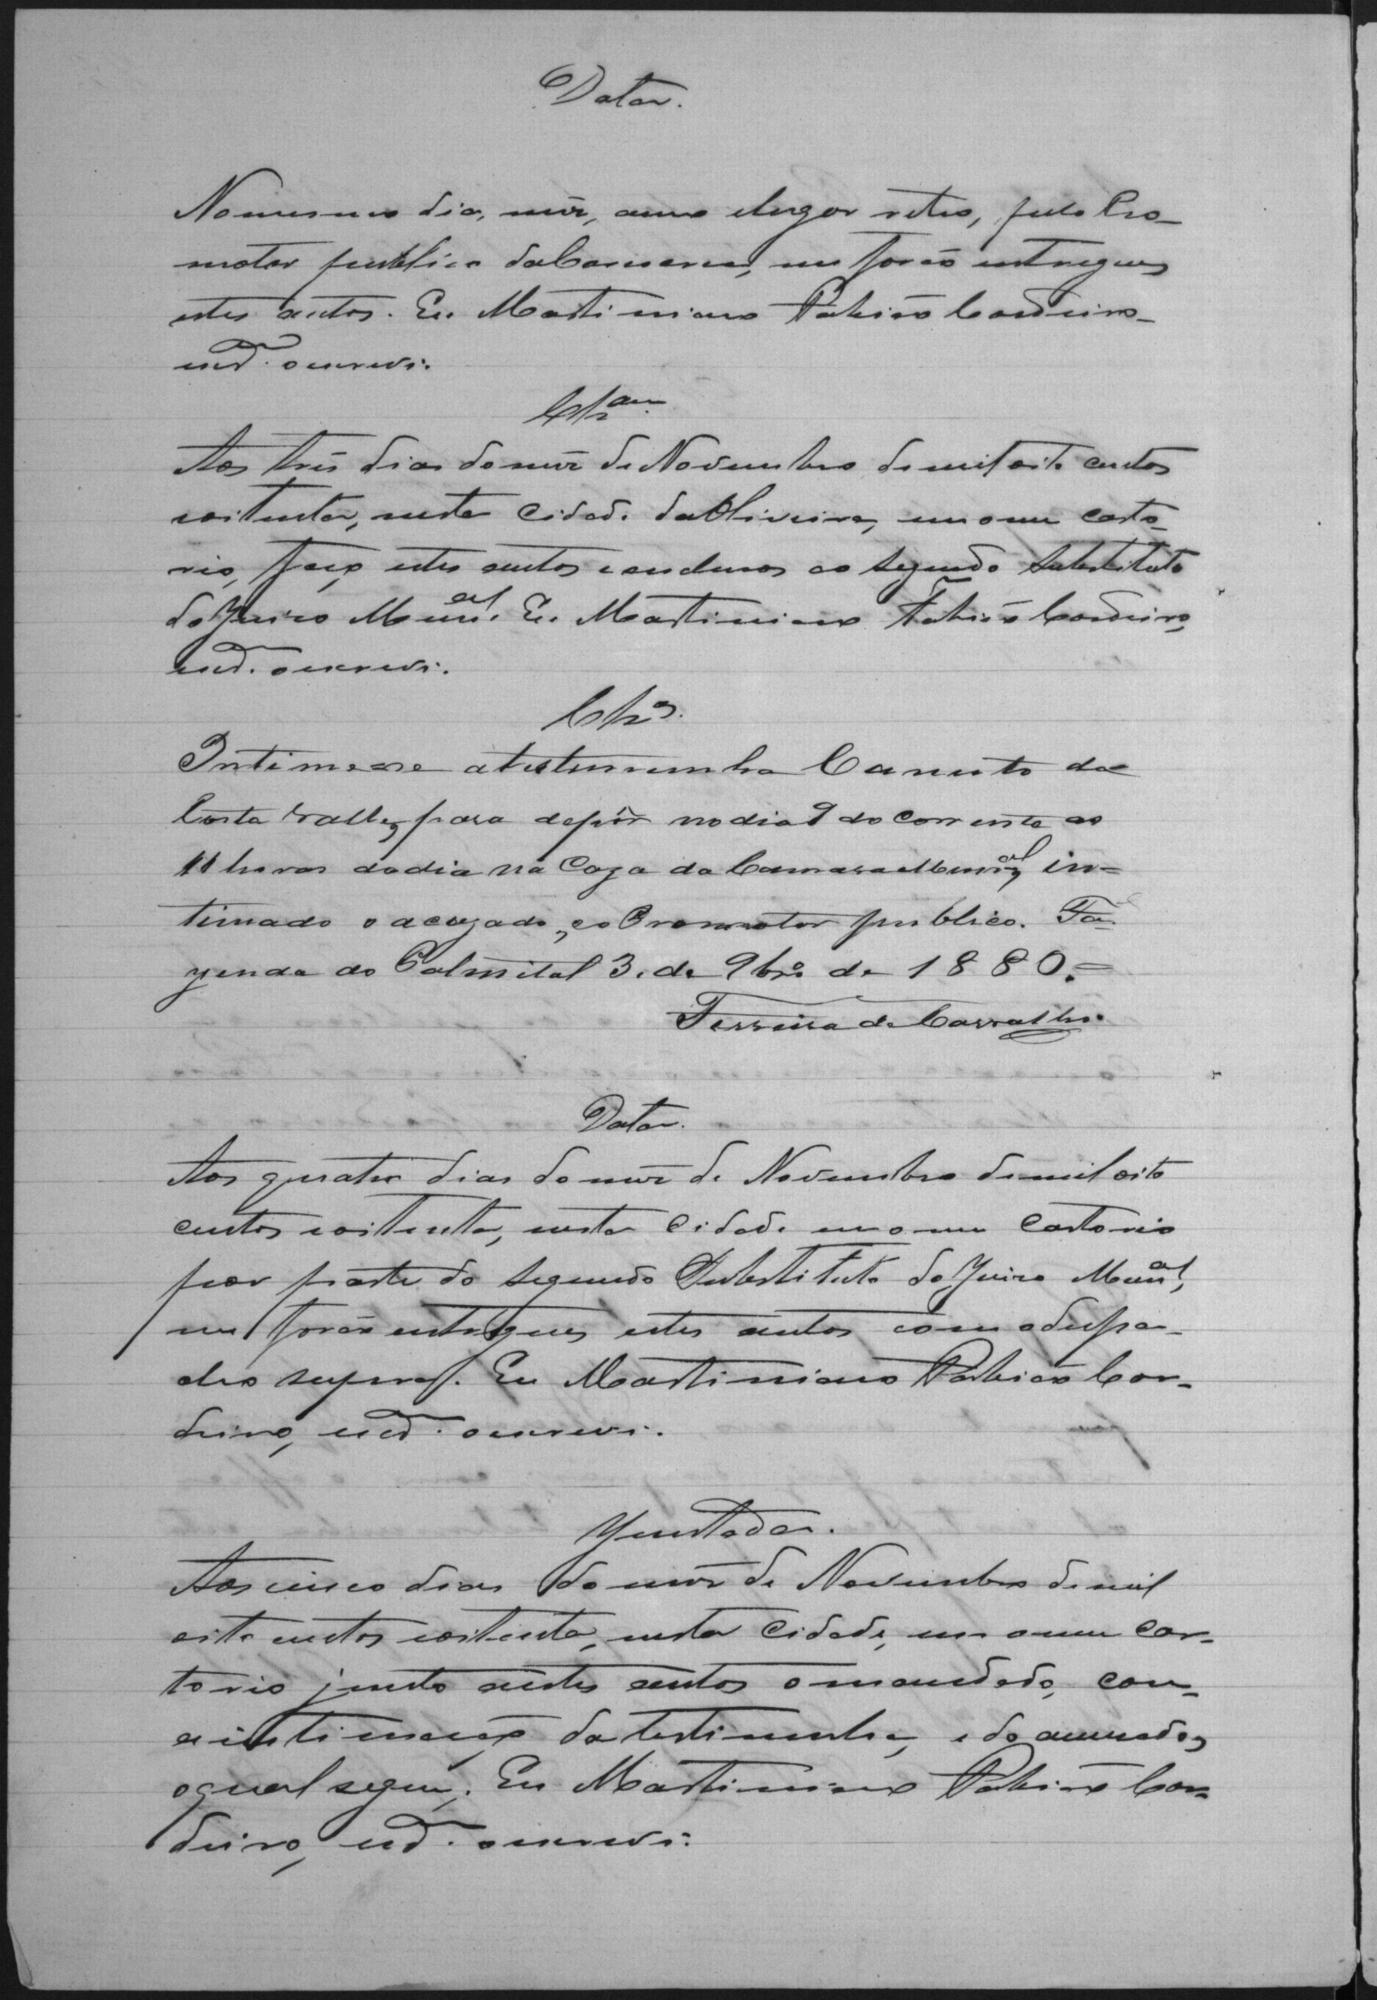 Data.
No mesmo dia, mez, anno e lugar retro, pelo Pro-
motor publico da Comarca, me forão entregues
estes autos. Eu Martiniano Patricio Cordeiro
esc.ᵃᵐ o escrevi.
Clz.ᵃᵐ
Aos tres dias do mez de Novembro de mil oito centos
e oitenta, nesta Cidade da Oliveira, em o meu carto-
rio, faço estes autos conclusos ao segundo Substituto
do Juizo Mun.ᵃˡ Eu Martiniano Patricio Cordeiro,
esc.ᵃᵐ o escrevi.
Clz.ᵒˢ
Intime-se a testemunha Canuto da
Costa Valle, para depôr no dia 9 do corrente as
11 horas do dia na Caza da Camara Mun.ᵃˡ, in-
timado o acuzado, e o Promotor publico. Fa-
zenda do Palmital 3 de 9br.ᵒ de 1880.=
Ferreira de Carvalho.
Data.
Aos quatro dias do mez de Novembro de mil oito
centos e oitenta, nesta Cidade em o meu Cartorio
por parte do segundo Substituto do Juizo Mun.ᵃˡ,
me forão entregues estes autos com o despa-
cho supra. Eu Martiniano Patricio Cor-
deiro, esc.ᵃᵐ o escrevi.
Juntada.
Aos cinco dias do mez de Novembro de mil
oito centos e oitenta, nesta Cidade, em o meu Car-
torio junto a estes autos o mandado, com
a intimação da testemunha, e do accusado,
o qual segue. Eu Martiniano Patricio Cor-
deiro, esc.ᵃᵐ o escrevi.